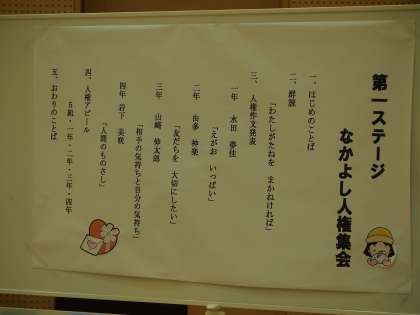 第一ステージ
なかよし人権集会
一、はじめのことば
二、群読
「わたしがたねを まかねければ」
三、人権作文発表
一年 水田 夢佳
「えがお いっぱい」
二年 由多 神楽
「友だちを 大切にしたい」
三年 山崎 伸太郎
「相手の気持ちと自分の気持ち」
四年 岩下 美咲
「人間のものさし」
四、人権アピール
5組・一年・二年・三年・四年
五、おわりのことば